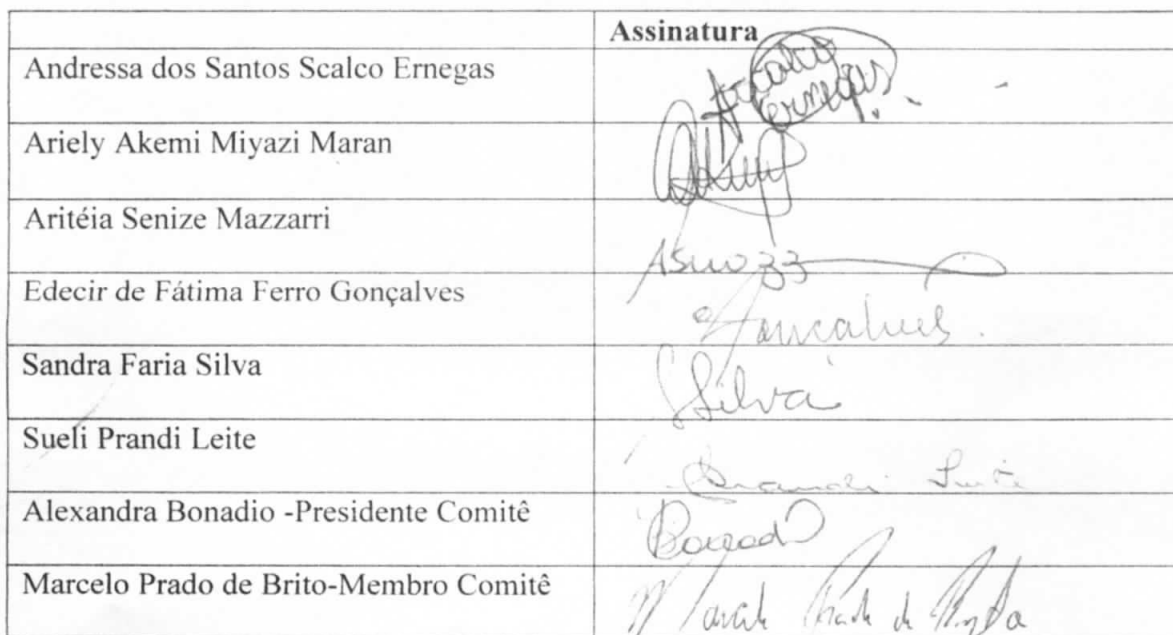 Assinatura
Andressa dos Santos Scalco Ernegas
Ernegas
Ariely Akemi Miyazi Maran
Aritéia Senize Mazzarri
Edecir de Fátima Ferro Gonçalves
Goncalves.
Sandra Faria Silva
Silva
Sueli Prandi Leite
Leite
Alexandra Bonadio -Presidente Comitê
Marcelo Prado de Brito-Membro Comitê